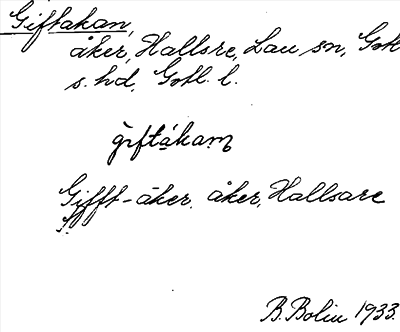 Giftakan,
åker, Hallsre, Lau sn, Gotl
s. hd, Gotl. l.
giftákam
Gifft-åker, åker, Hallsare
B. Bolin 1933.